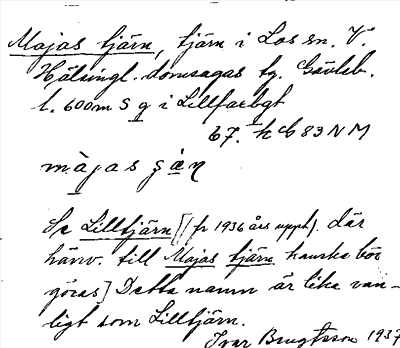 Majas tjärn, tjärn i Los sn. V.
Hälsingl. domsagas tg. Gävleb.
l. 600 m S g i Lillfarbgt
67. h C 83 N M
màjas
Se Lilltjärn [(fr 1936 års uppt). där
hänv. till Majas tjärn kanske bör
göras] Detta namn är lika van-
ligt som Lilltjärn.
Ivar 1937